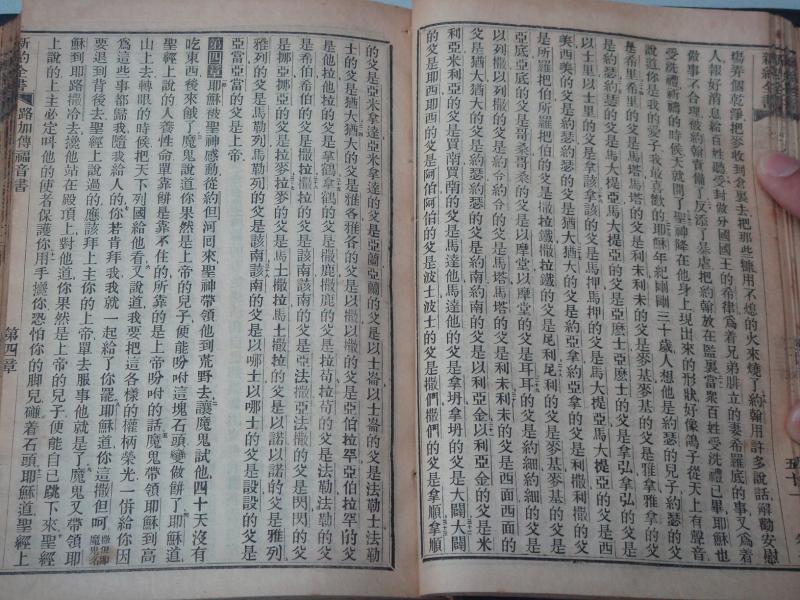 場弄個乾淨把麥收到倉裏去把那些糠用不熄的火來燒了約翰用許多說話辭勸安慰
人報好消息給百姓聽受封做分國國王的希律爲着兄弟腓立的妻希羅底的事又爲着
做事不合理被約翰責備了反添了一是虐把約翰放在監裏當衆百姓受洗禮已畢耶穌也
受洗禮祈禱的時候天就開了聖神降在他身上現出來的形狀好像鴿子從天上有聲音
說道你是我的愛子我最喜歡的耶穌年紀剛剛三十歲人想他是約瑟的兒子約瑟的父
是希里希里的父是馬塔馬塔的父是利未利未的父是麥基麥基的父是雅拿雅拿的父
是約瑟約瑟的父是馬大提亞馬大提亞的父是亞麽士亞麽士的父是拿弘拿弘的父是
以士里以士里的父是拿該拿該的父是馬押馬押的父是馬大提亞馬大提亞的父是
西美西美的父是約瑟約瑟的父是猶大猶大的父是約亞拿約亞拿的父是利撒利撒的父
是所羅把伯所羅把伯的父是撒拉鐵撒拉鐵的父是尼利尼利的父是麥基麥基的父是
亞底亞底的父是哥桑哥桑的父是以摩堂以摩堂的父是耳耳的父是約細約細的父是
以列撒以列撒的父是約令約令的父是馬塔馬塔的父是利未利未的父是西面西面的
父是猶大猶大的父是約瑟約瑟的父是約南約南的父是以利亞金以利亞金的父是米
利亞米利亞的父是買南買南的父是馬達馬達他的父是拿坍拿坍的父是大闢大闢
的父是耶西耶西的父是阿伯阿伯的父是波士波士的父是撒們撒們的父是拿順拿順
的父是亞米拿達亞米拿達的父是亞蘭亞蘭的父是以士崙以士崙的父是法勒士法勒
士的父是猶大猶大的父是雅各雅各的父是以撒以撒的父是亞伯拉罕亞伯拉罕的父
是他拉他拉的父是拿鶴拿鶴的父是撒鹿撒鹿的父是拉茍拉茍的父是法勒法勒的父
是希伯希伯的父是撒拉撒拉的父是該南該南的父是亞法撒亞法撒的父是閃閃的父
是挪亞挪亞的父是拉麥拉麥的父是馬土撒拉馬土撒拉的父是以諾以諾的父是雅列
雅列的父是馬勒列馬勒列的父是該南該南的父是以哪士以哪士的父是設設的父是
亞當亞當的父是上帝
第四章 耶穌被聖神感動從約但河囘來聖神帶領他到荒野去讓魔鬼試他四十天沒有
吃東西後來餓了魔鬼說道你果然是上帝的兒子便能吩咐這塊石頭變做餅了耶穌道
聖經上說的人養性命單靠餅是靠不住的所靠的是上帝吩咐的話魔鬼帶領耶穌到高
山上去轉眼的時候把天下列國給他看又說道我要把這各樣的權柄榮光一併給你因
爲這些事都歸我隨我給人的你若肯拜我我就一起給了你罷耶穌道你這撒但呵
要退到背後去聖經上說過的應該拜上主你的上帝單去服事他就是了魔鬼又帶領耶
穌到耶路撒冷去攙他站在殿頂上對他道你果然是上帝的兒子便能自己跳下來聖經
上說的上主必定叫他的使者保護你用手攙你恐怕你的脚兒碰着石頭耶穌道聖經上
新約全書 路加傳福音書 第四章